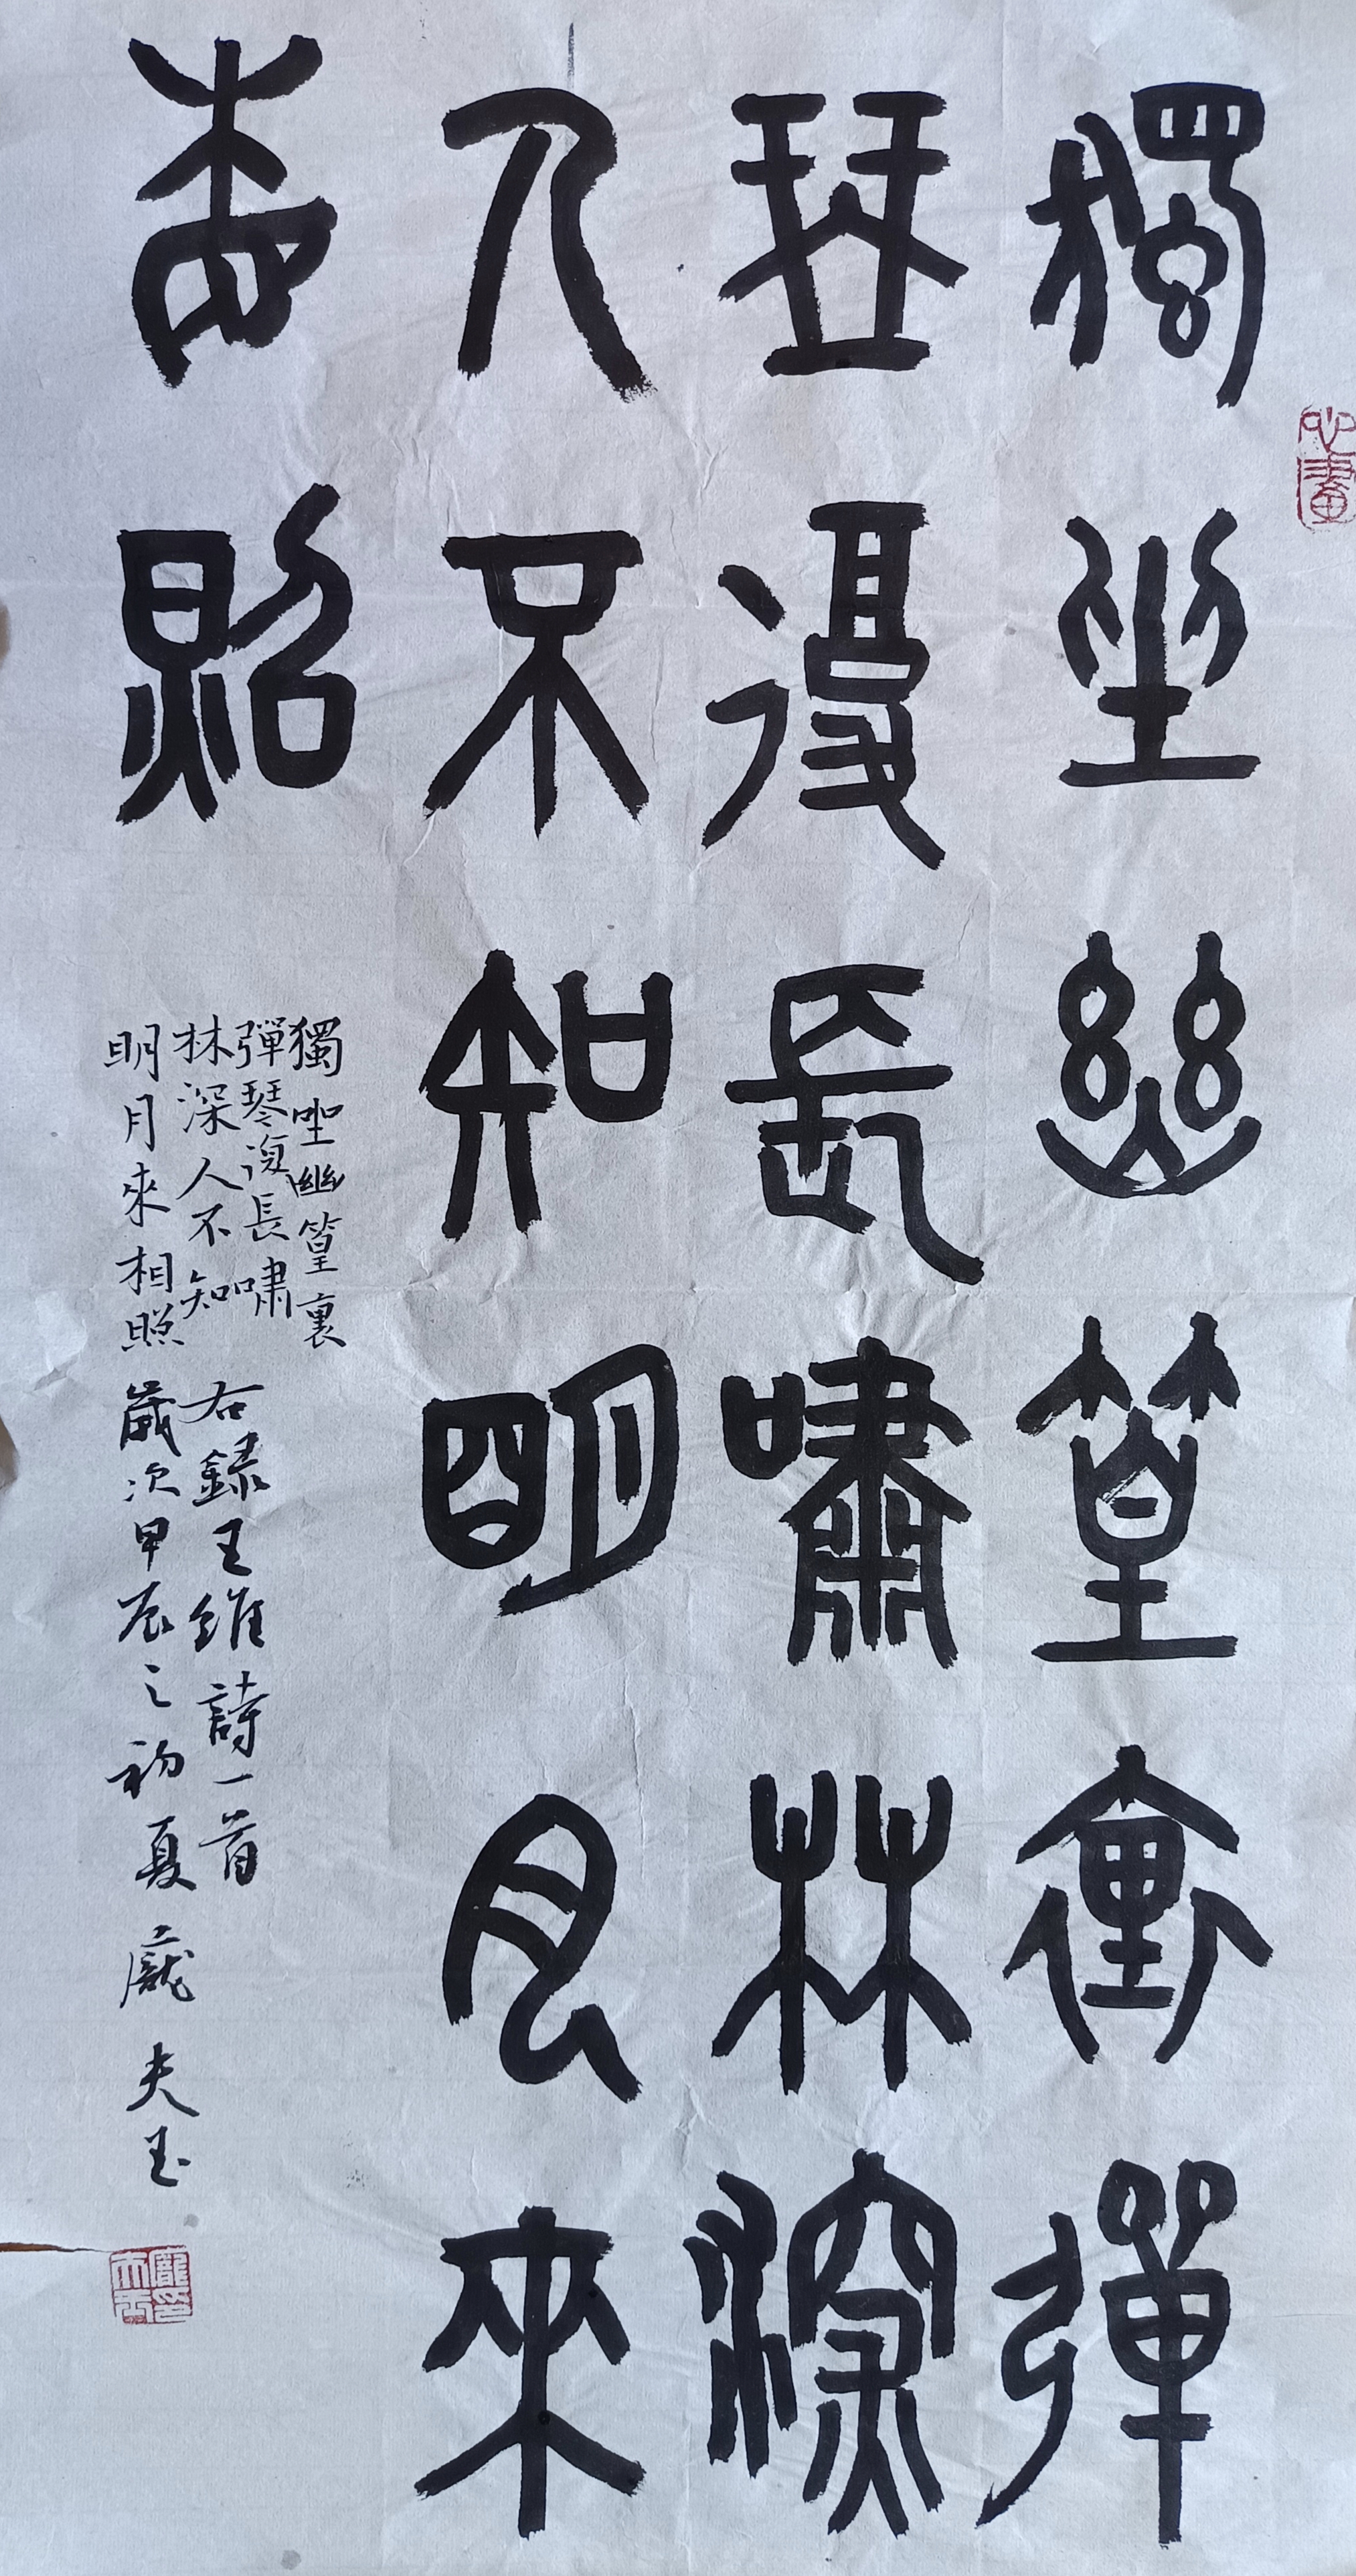 獨坐幽篁裏彈
琴復長嘯林深
人不知明月來
相照
獨坐幽篁裏
彈琴復長嘯
林深人不知
明月來相照
右録王維詩一首
歲次甲辰之初夏龐夫玉
心畫